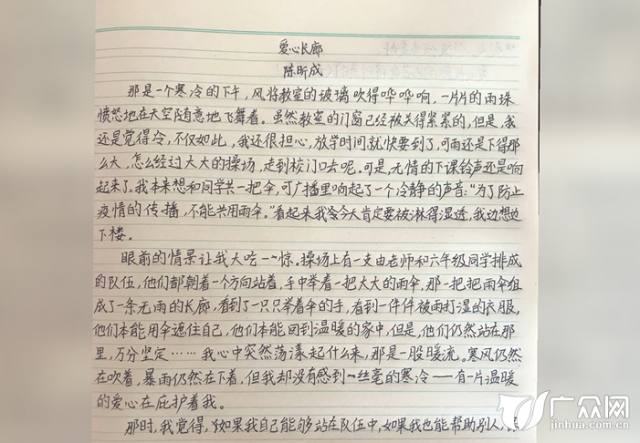 爱心长廊
陈昕成
那是一个寒冷的下午，风将教室的玻璃吹得哗哗响，一片片的雨珠
愤怒地在天空随意地飞舞着。虽然教室的门窗已经被关得紧紧的，但是，我
还是觉得冷，不仅如此，我还很担心，放学时间就快要到了，可雨还是下得那
么大，怎么经过大大的操场，走到校门口去呢。可是，无情的下课铃声还是响
起来了。我本来想和同学共一把伞，可广播里响起了一个冷静的声音：“为了防止
疫情的传播，不能共用雨伞。”看起来我今天肯定要被淋得湿透，我边想边
下楼。
眼前的情景让我大吃一惊。操场上有一支由老师和六年级同学排成
的队伍，他们都朝着一个方向站着，手中举着一把大大的雨伞，那一把把雨伞组
成了一条无雨的长廊，看到了一只只举着伞的手，看到一件件被雨打湿的衣服，
他们本能用伞遮住自己，他们本能回到温暖的家中，但是，他们仍然站在那
里，万分坚定……我心中突然荡漾起什么来，那是一股暖流。寒风仍然
在吹着，暴雨仍然在下着，但我却没有感到一丝毫的寒冷——有一片温暖
的爱心在庇护着我。
那时，我觉得，“如果我自己能够站在队伍中，如果我也能帮助别人，
广众网
www.cnbum.cn